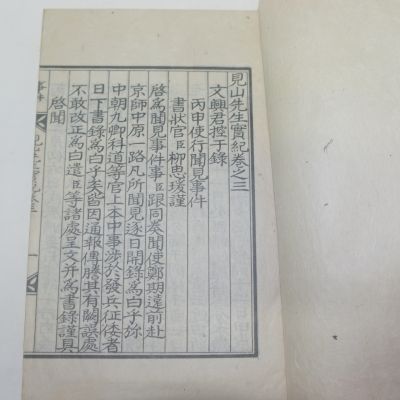 見山先生實紀卷之三
文興君控于錄
丙申使行聞見事件
書狀官臣柳思瑗謹
啓爲聞見事件事臣跟同奏聞使鄭期遠前赴
京師中原一路凡所聞見逐日開錄爲白乎旀
中朝九卿科道等官上本中事涉於發兵征倭者
日下書錄爲白乎矣皆因通報傳謄其有闕誤處
不敢改正爲白遣臣等諸處呈文并爲書錄謹具
啓聞